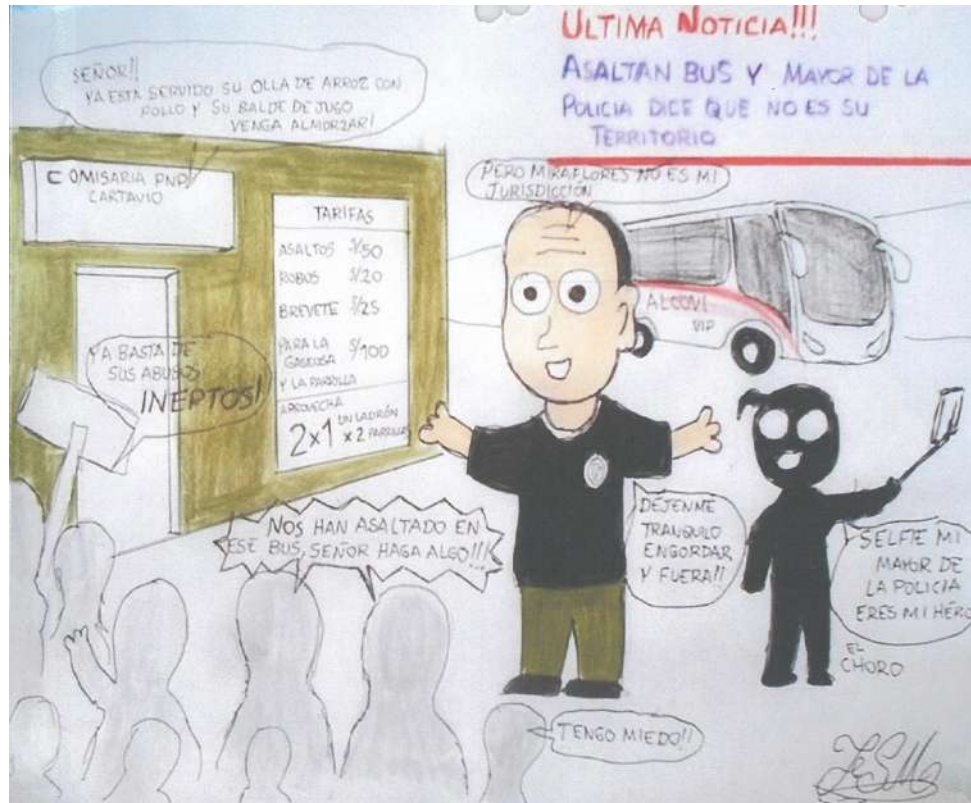 ULTIMA NOTICIA!!!
ASALTAN BUS Y MAYOR DE LA
POLICIA DICE QUE NO ES SU
TERRITORIO
SEÑOR!!
YA ESTA SERVIDO SU OLLA DE ARROZ CON
POLLO Y SU BALDE DE JUGO
VENGA ALMORZAR!
COMISARIA PNP
CARTAVIO
TARIFAS
ASALTOS S/50
ROBOS S/20
BREVETE S/25
PARA LA
GASEOSA S/100
Y LA PARRILLA
APROVECHA
2x1 UN LADRÓN
x 2 PARRILLAS
PERO MIRAFLORES NO ES MI
JURISDICCIÓN
ALCOVI
VIP
YA BASTA DE
SUS ABUSOS
INEPTOS!
NOS HAN ASALTADO EN
ESE BUS, SEÑOR HAGA ALGO!!!
DÉJENME
TRANQUILO
ENGORDAR
Y FUERA!!
SELFIE MI
MAYOR DE
LA POLICIA
ERES MI HÉRO
EL
CHORO
TENGO MIEDO!!